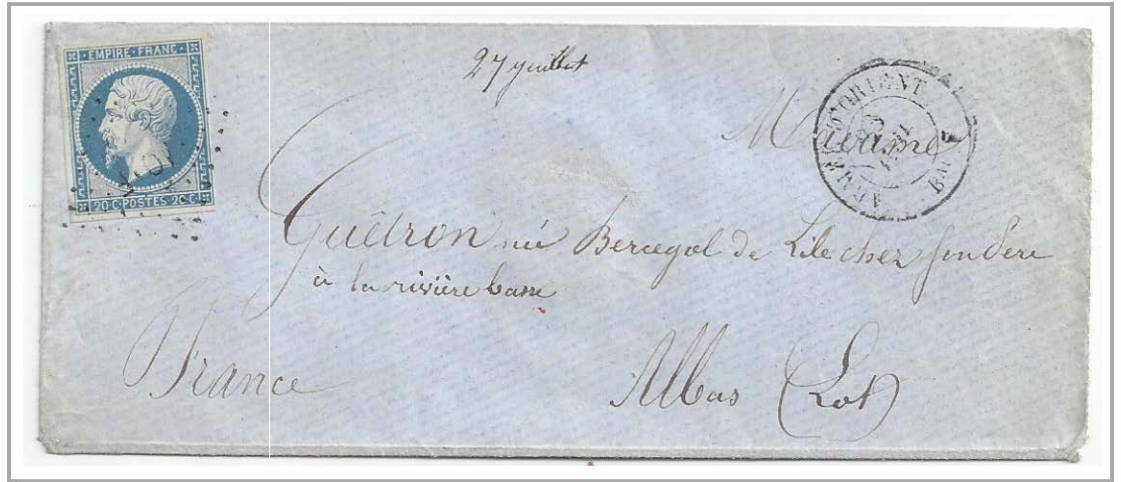 EMPIRE · FRANC ·
20 · C · POSTES · 20 · C
27 juillet
D'ORIENT
ARMÉE
Bau
Madame
Guêtron née Bercegol de Lile chez son Père
à la rivière basse
France
Albas (Lot)